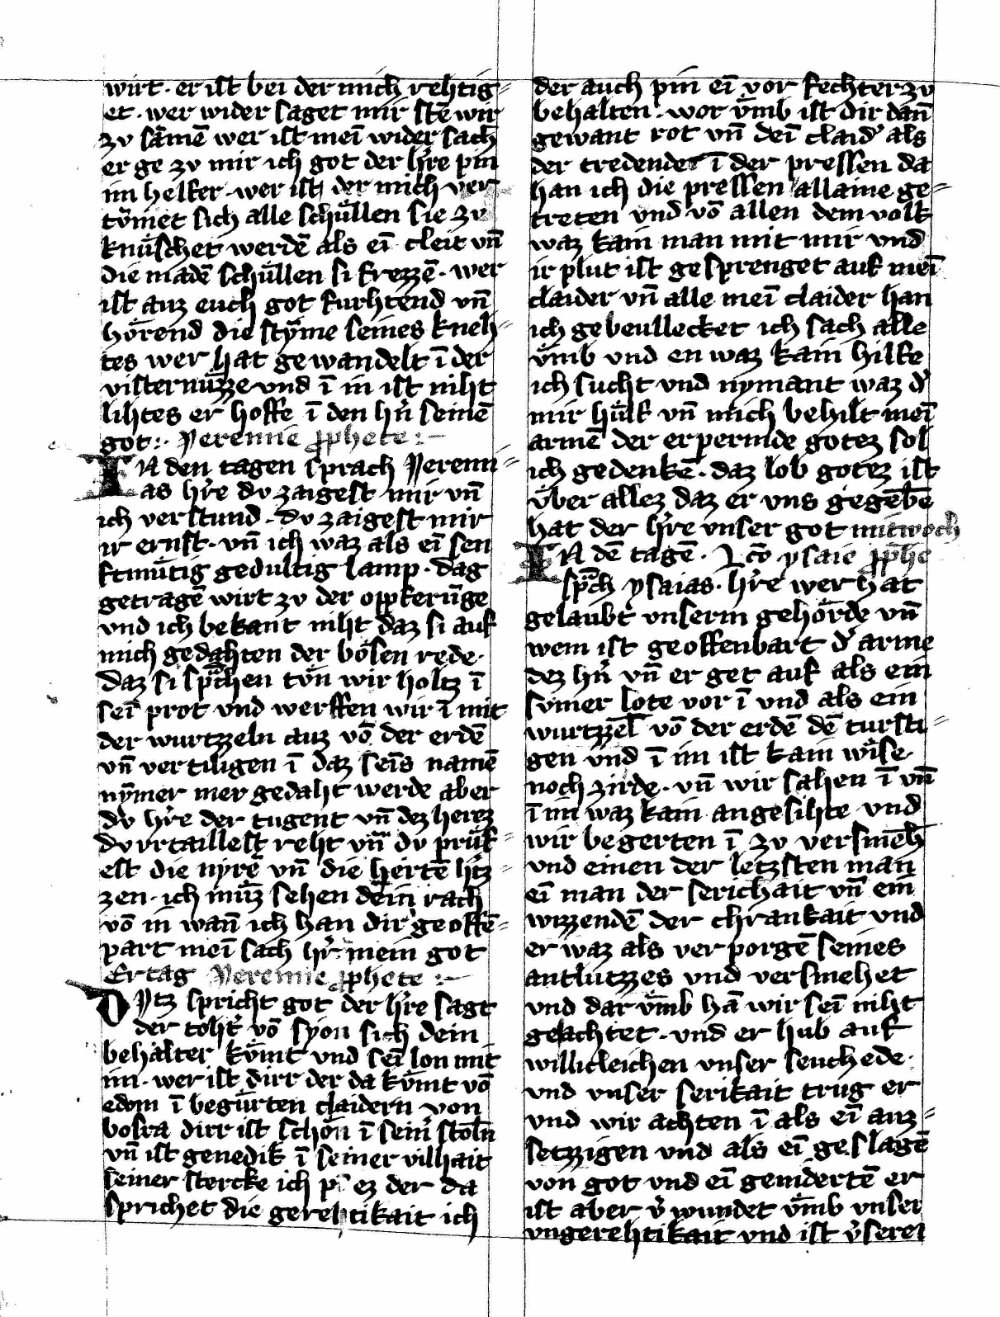 wirt · er ist bei der mich rehtig⸗
et · wer wider saget mir stē wir
zv sāmē wer ist meī wider sach̄
er ge zv mir ich got der h̓re pin
im helfer · wer ist der mich ver⸗
tv̊met sich alle schůllen sie zv
knůschet werdē als eī cleit vn̄
die madē schůllen si frezzē · wer
ist auz euch got furhtend vn̄
hŏrend die stym̄e seines kneh⸗
tes wer hat gewandelt ī der
visternůzze vnd ī im ist niht
lihtes er hoffe ī den hn̓ seinē
got :· Yeremie ꝓphete :~
IN den tagen sprach Yeremi⸗
as h̓re dv zaigest mir vn̄
ich verstund · dv zaigest mir
ir ernst · vn̄ ich waz als eī sen
ftmůtig gedultig lamp · dag
getragē wirt zv der opferūge
vnd ich bekant niht daz si auf
mich gedahten der bŏsen rede ·
daz si sp̄chen tv̊n wir holtz ī
seī prot vnd werffen wir ī mit
der wurtzzeln auz vō der erdē
vn̄ vertiligen ī daz seīs namē
nȳmer mer gedaht werde aber
dv h̓re der tugent vn̄ dez herez
dv vrtaillest reht vn̄ dv průf⸗
est die nyrē vn̄ die hertē hitz
zen · ich můz sehen dein rach
vō in wan̄ ich han dir geoffē⸗
part meī sach h̓r mein got
Ertag Yeremie ꝓphete :~
Ditz spricht got der h̓re sagt
der toht̓ vō syon sich dein
behalter kv̊mt vnd seī lon mit
im · wer ist dirr der da kv̊mt vō
edom ī begůrten claidern von
bosra dirr ist schŏn ī sein̓ stoln
vn̄ ist genedik ī seiner vilhait
seiner stercke ich pī ez der da
sprichet die gerehtikait ich
der auch pin eī vor fechter zv
behalten · wor v̊mb ist dir dan̄
gewant rot vn̄ deī claid̓ als
der tredender ī der pressen da
han ich die pressen allaine ge⸗
treten vnd vō allen dem volk
waz kain man mit mir vnd
ir plut ist gesprenget auf meī
claider vn̄ alle meī claider han
ich gebeullecket ich sach alle
v̊mb vnd en waz kain hilfe
ich sucht vnd nymant waz d̓
mir hůlf vn̄ mich behilt meī
armē der erpermde gotez sol
ich gedenkē · daz lob gotez ist
ůber allez daz er vns gegēbē
hat der h̓re vnser got mitwoch
IN dē tagē · Lc̄o ysaie ꝓphe
sp̄ch ysaias · h̓re wer hat
gelaubt vnserm gehŏrde vn̄
wem ist geoffenbart d̓ arme
dez hn̓ vn̄ er get auf als ein
svmer lote vor ī vnd als ein
wurtzzel vō der erdē dē tursti⸗
gen vnd ī im ist kain wise ·
noch zirde · vn̄ wir sahen ī vn̄
ī im waz kain angesihte vnd
wir begerten ī zv versmeh̄
vnd einen der letzsten man
eī man der serichait vn̄ ein
wizzendē der chrankait vnd
er waz als verporgē seines
antlutzzes vnd versmehet
vnd dar v̊mb hā wir seī niht
geachtet · vnd er hub auf
willicleichen vnser seuchede ·
vnd vnser serikait trug er
vnd wir achten ī als eī auz⸗
setzzigen vnd als eī geslagē
von got vnd eī gemdertē er
ist aber v̓wundet v̊mb vnser
vngerehtikait vnd ist v̓seret